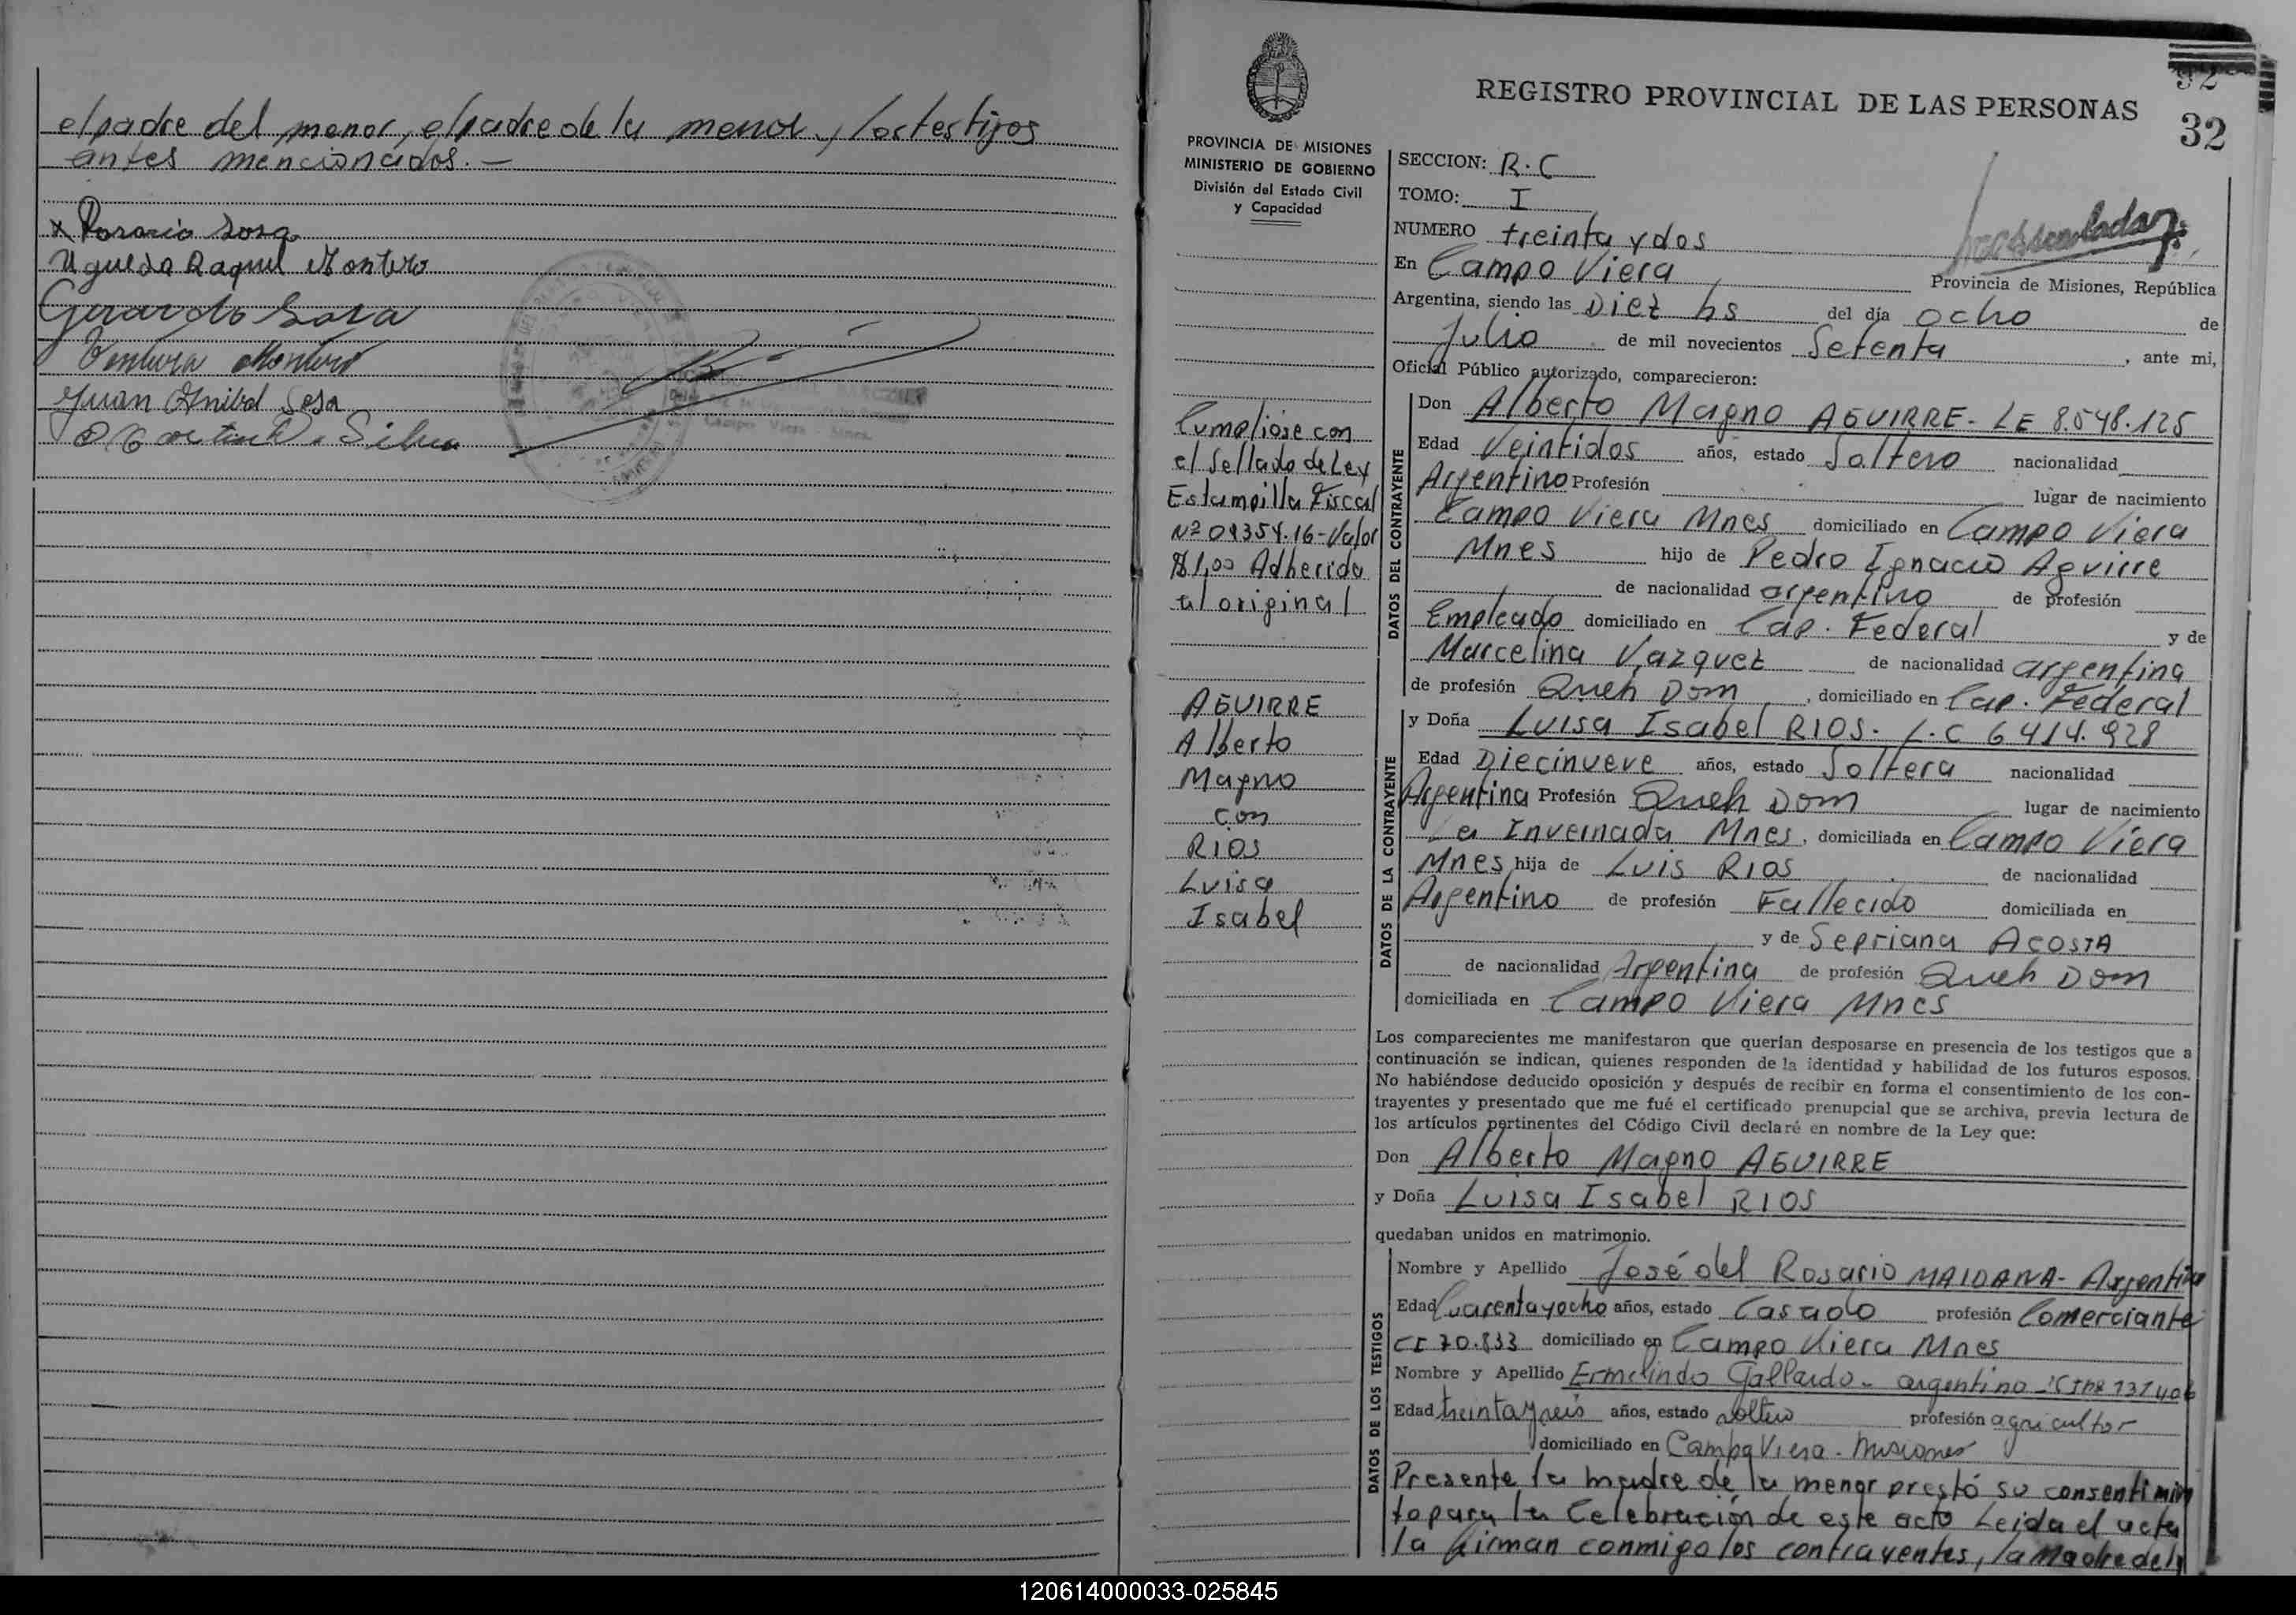 el padre del menor, el padre de la menor y los testigos
antes mencionados. —
x Rosario Sosa
Ugueda Raquel Montero
Gerardo Sosa
Ventura Montero
Juan Anibal Sosa
Silva
Campo Viera
32
32
REGISTRO PROVINCIAL DE LAS PERSONAS
PROVINCIA DE MISIONES
MINISTERIO DE GOBIERNO
División del Estado Civil
y Capacidad
SECCION: R.C
TOMO: I
NUMERO treinta y dos
En Campo Viera Provincia de Misiones, República
Argentina, siendo las Diez hs del día ocho de
Julio de mil novecientos Setenta, ante mi,
Oficial Público autorizado, comparecieron:
Cumpliose con
el Sellado de Ley
Estampilla Fiscal
Valor
$1,00 Adherida
al original
AGUIRRE
Alberto
Magno
con
RIOS
Luisa
Isabel
DATOS DEL CONTRAYENTE
Don Alberto Magno AGUIRRE- LE 8.548.125
Edad Veintidos años, estado Soltero nacionalidad
Argentino Profesión lugar de nacimiento
Campo Viera Mnes domiciliado en Campo Viera
Mnes hijo de Pedro Ignacio Aguirre
de nacionalidad argentino de profesión
Empleado domiciliado en Cap. Federal y de
Marcelina Vazquez de nacionalidad argentina
de profesión Queh Dom, domiciliado en Cap. Federal
DATOS DE LA CONTRAYENTE
y Doña Luisa Isabel RIOS. L.C 6414.928
Edad Diecinueve años, estado Soltera nacionalidad
Argentina Profesión Queh Dom lugar de nacimiento
La Invernada Mnes, domiciliada en Campo Viera
Mnes hija de Luis RIOS de nacionalidad
Argentino de profesión Fallecido domiciliada en
y de Sepriana ACOSTA
de nacionalidad Argentina de profesión Queh Dom
domiciliada en Campo Viera Mnes
Los comparecientes me manifestaron que querían desposarse en presencia de los testigos que a
continuación se indican, quienes responden de la identidad y habilidad de los futuros esposos.
No habiéndose deducido oposición y después de recibir en forma el consentimiento de los con-
trayentes y presentado que me fué el certificado prenupcial que se archiva, previa lectura de
los artículos pertinentes del Código Civil declaré en nombre de la Ley que:
Don Alberto Magno AGUIRRE
y Doña Luisa Isabel RIOS
quedaban unidos en matrimonio.
DATOS DE LOS TESTIGOS
Nombre y Apellido José del Rosario MAIDANA- Argentino
Edad Cuarenta y ocho años, estado Casado profesión Comerciante
CI 70.833 domiciliado en Campo Viera Mnes
Nombre y Apellido Ermelindo Gallardo- argentino
Edad treinta y seis años, estado soltero profesión agricultor
domiciliado en Campo Viera - Misiones
Presente la madre de la menor prestó su consentimien
to para la Celebración de este acto Leida el acta
la firman conmigo los contrayentes, la Madre de la
120614000033-025845